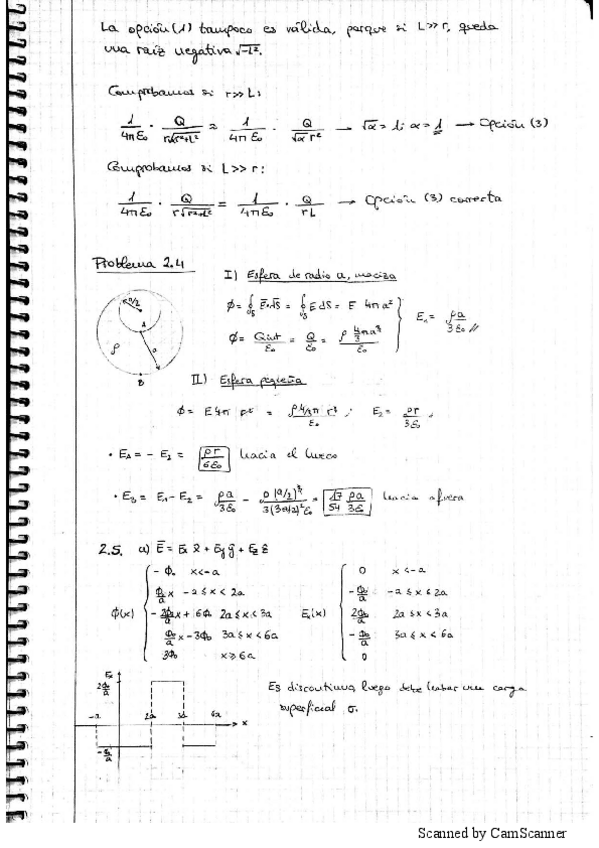 La opción (1) tampoco es válida, porque si L>>r, queda
una raíz negativa √-L².
Comprobamos si r>>L:
1/4πε₀ · Q/r√r²+L² ≈ 1/4πε₀ · Q/√α r² → √α = 1; α = 1 → Opción (3)
Comprobamos si L>>r:
1/4πε₀ · Q/r√r²+L² = 1/4πε₀ · Q/rL → Opción (3) correcta
Problema 2.4
I) Esfera de radio a, maciza
a/2
A
ρ
a
B
ϕ = ∮s E·dS = ∮s E dS = E 4πa²
ϕ = Qint/ε₀ = Q/ε₀ = ρ 4/3 πa³/ε₀
E₁ = ρa/3ε₀ //
II) Esfera pequeña
ϕ = E 4π r² = ρ 4/3 π r³/ε₀ ; E₂ = ρr/3ε₀
• EA = - E₂ = ρr/6ε₀ hacia el hueco
• EB = E₁ - E₂ = ρa/3ε₀ - ρ(a/2)³/3(3a/2)²ε₀ = 17/54 ρa/3ε₀ hacia afuera
2.5. a) E = Ex x̂ + Ey ŷ + Ez ẑ
ϕ(x)
- ϕ₀ x<-a
ϕ₀/a x -a ≤ x < 2a
- 2ϕ₀/a x + 6ϕ₀ 2a ≤ x < 3a
ϕ₀/a x - 3ϕ₀ 3a ≤ x < 6a
3ϕ₀ x ≥ 6a
Ex(x)
0 x < -a
- ϕ₀/a -a ≤ x < 2a
2ϕ₀/a 2a ≤ x < 3a
- ϕ₀/a 3a ≤ x < 6a
0
Ex
2ϕ₀/a
-a 2a 3a 6a x
- ϕ₀/a
Es discontinua, luego debe haber una carga
superficial σ.
Scanned by CamScanner